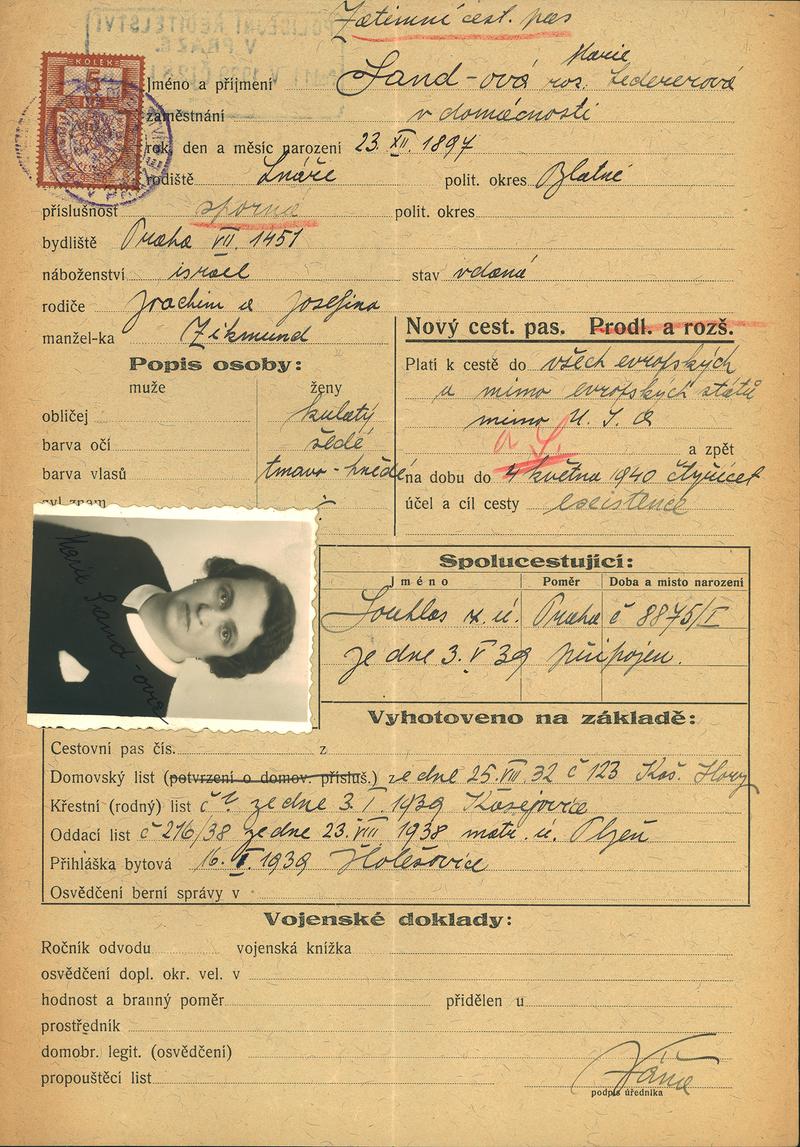 Zatimní cest. pas
KOLEK
5
Jméno a příjmení Sand-ová Marie roz. Ledererová
zaměstnání v domácnosti
rok, den a měsíc narození 23. XII. 1897
rodiště Lnáře polit. okres Blatné
příslušnost sporná polit. okres
bydliště Praha VII. 1451
náboženství israel stav vdaná
rodiče Joachim a Josefina
manžel-ka Zikmund
Nový cest. pas. Prodl. a rozš.
Popis osoby:
muže ženy
obličej kulatý
barva očí šedé
barva vlasů tmavo-hnědé
zvl. znam.
Platí k cestě do všech evropských
a mimo evropských států
mimo U. S. a S.
a zpět
na dobu do 4 května 1940 čtyřicet
účel a cíl cesty existence
Marie Sand-ová
Spolucestující:
Jméno Poměr Doba a místo narození
Souhlas z. ú. Praha č 8875/I
ze dne 3. V 39 připojen.
Vyhotoveno na základě:
Cestovní pas čís. z
Domovský list (potvrzení o domov. přísluš.) ze dne 25. VIII. 32 č 123 Kaš. Hory
Křestní (rodný) list č 1. ze dne 3. I. 1939 Kasejovice
Oddací list č 216/38 ze dne 23. VIII 1938 matr. ú. Plzeň
Přihláška bytová 16. I. 1939 Holešovice
Osvědčení berní správy v
Vojenské doklady:
Ročník odvodu vojenská knížka
osvědčení dopl. okr. vel. v
hodnost a branný poměr přidělen u
prostředník
domobr. legit. (osvědčení)
propouštěcí list
podpis úředníka